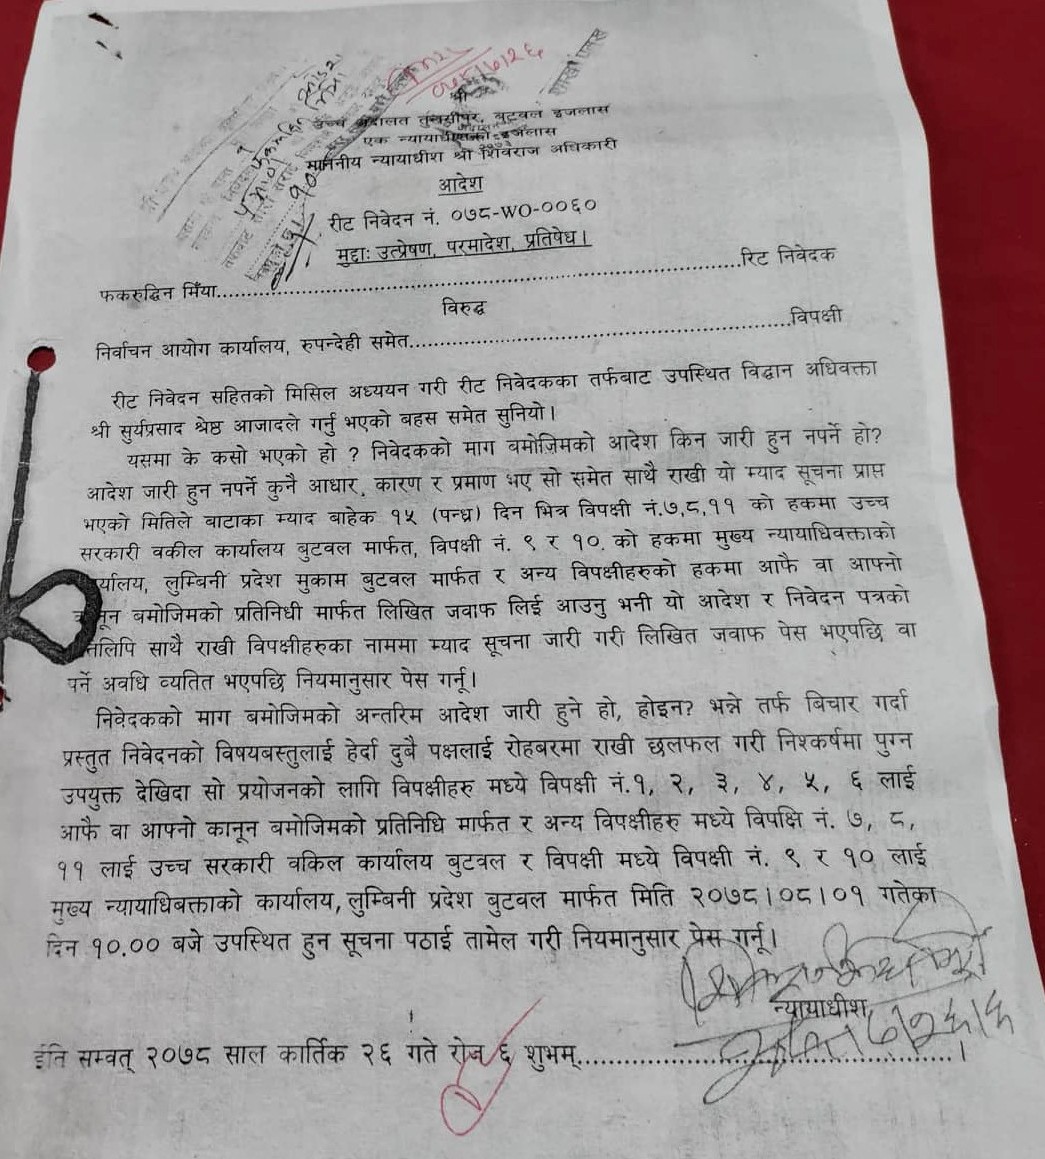 श्री
उच्च अदालत तुलसीपुर, बुटवल इजलास
एक न्यायाधीशको इजलास
माननीय न्यायाधीश श्री शिवराज अधिकारी
आदेश
रीट निवेदन नं. ०७८-WO-००६०
मुद्दाः उत्प्रेषण, परमादेश, प्रतिषेध।
फकरुद्धिन मिँया..............................रिट निवेदक
विरुद्ध
निर्वाचन आयोग कार्यालय, रुपन्देही समेत..............................विपक्षी
रीट निवेदन सहितको मिसिल अध्ययन गरी रीट निवेदकका तर्फबाट उपस्थित विद्धान अधिवक्ता
श्री सुर्यप्रसाद श्रेष्ठ आजादले गर्नु भएको बहस समेत सुनियो।
यसमा के कसो भएको हो ? निवेदकको माग बमोजिमको आदेश किन जारी हुन नपर्ने हो?
आदेश जारी हुन नपर्ने कुनै आधार, कारण र प्रमाण भए सो समेत साथै राखी यो म्याद सूचना प्राप्त
भएको मितिले बाटाका म्याद बाहेक १५ (पन्ध्र) दिन भित्र विपक्षी नं.७,८,११ को हकमा उच्च
सरकारी वकील कार्यालय बुटवल मार्फत, विपक्षी नं. ९ र १०. को हकमा मुख्य न्यायाधिवक्ताको
र्यालय, लुम्बिनी प्रदेश मुकाम बुटवल मार्फत र अन्य विपक्षीहरुको हकमा आफै वा आफ्नो
नून बमोजिमको प्रतिनिधी मार्फत लिखित जवाफ लिई आउनु भनी यो आदेश र निवेदन पत्रको
लिपि साथै राखी विपक्षीहरुका नाममा म्याद सूचना जारी गरी लिखित जवाफ पेस भएपछि वा
पर्ने अवधि व्यतित भएपछि नियमानुसार पेस गर्नू।
निवेदकको माग बमोजिमको अन्तरिम आदेश जारी हुने हो, होइन? भन्ने तर्फ बिचार गर्दा
प्रस्तुत निवेदनको विषयबस्तुलाई हेर्दा दुबै पक्षलाई रोहबरमा राखी छलफल गरी निश्कर्षमा पुग्न
उपयुक्त देखिदा सो प्रयोजनको लागि विपक्षीहरु मध्ये विपक्षी नं.१, २, ३, ४, ५, ६ लाई
आफै वा आफ्नो कानून बमोजिमको प्रतिनिधि मार्फत र अन्य विपक्षीहरु मध्ये विपक्षि नं. ७, ८,
११ लाई उच्च सरकारी वकिल कार्यालय बुटवल र विपक्षी मध्ये विपक्षी नं. ९ र १० लाई
मुख्य न्यायाधिबक्ताको कार्यालय, लुम्बिनी प्रदेश बुटवल मार्फत मिति २०७८।०८।०१ गतेका
दिन १०.०० बजे उपस्थित हुन सूचना पठाई तामेल गरी नियमानुसार प्रेस गर्नू।
न्यायाधीश
ईति सम्वत् २०७८ साल कार्तिक २६ गते रोज ६ शुभम्..............................।